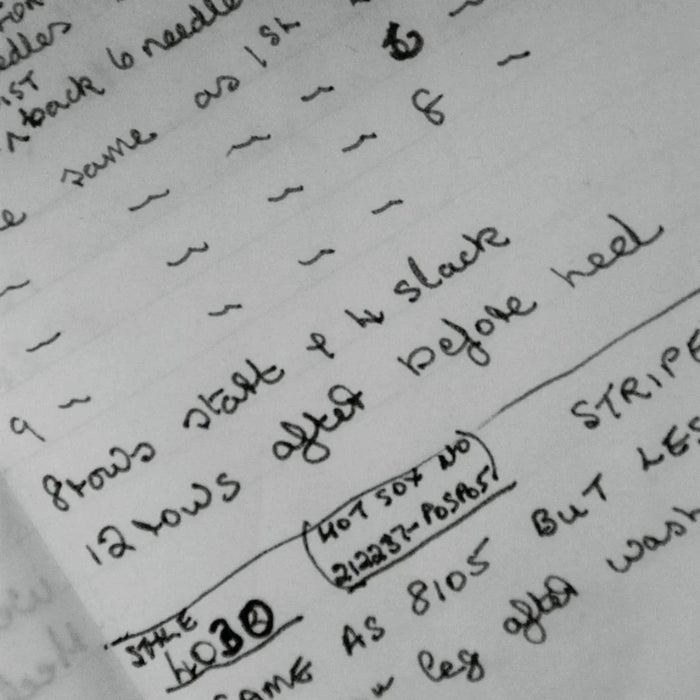 edles
1ST
back 6 needle
same as 1st 6
~ ~ ~ 8 ~
~ ~ ~
~ ~ ~
~ ~
9 ~
8 rows start & 4 slack
12 rows after before heel
HOT SOX NO
212237-POSPOS1
STRIPE
STYLE
4030
SAME AS 8105 BUT LES
leg after wash